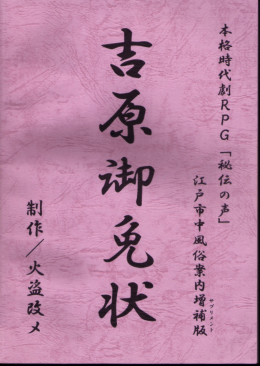 本格時代劇RPG「秘伝の声」
江戸市中風俗案内増補版
サプリメント
吉原御免状
制作／火盗改メ